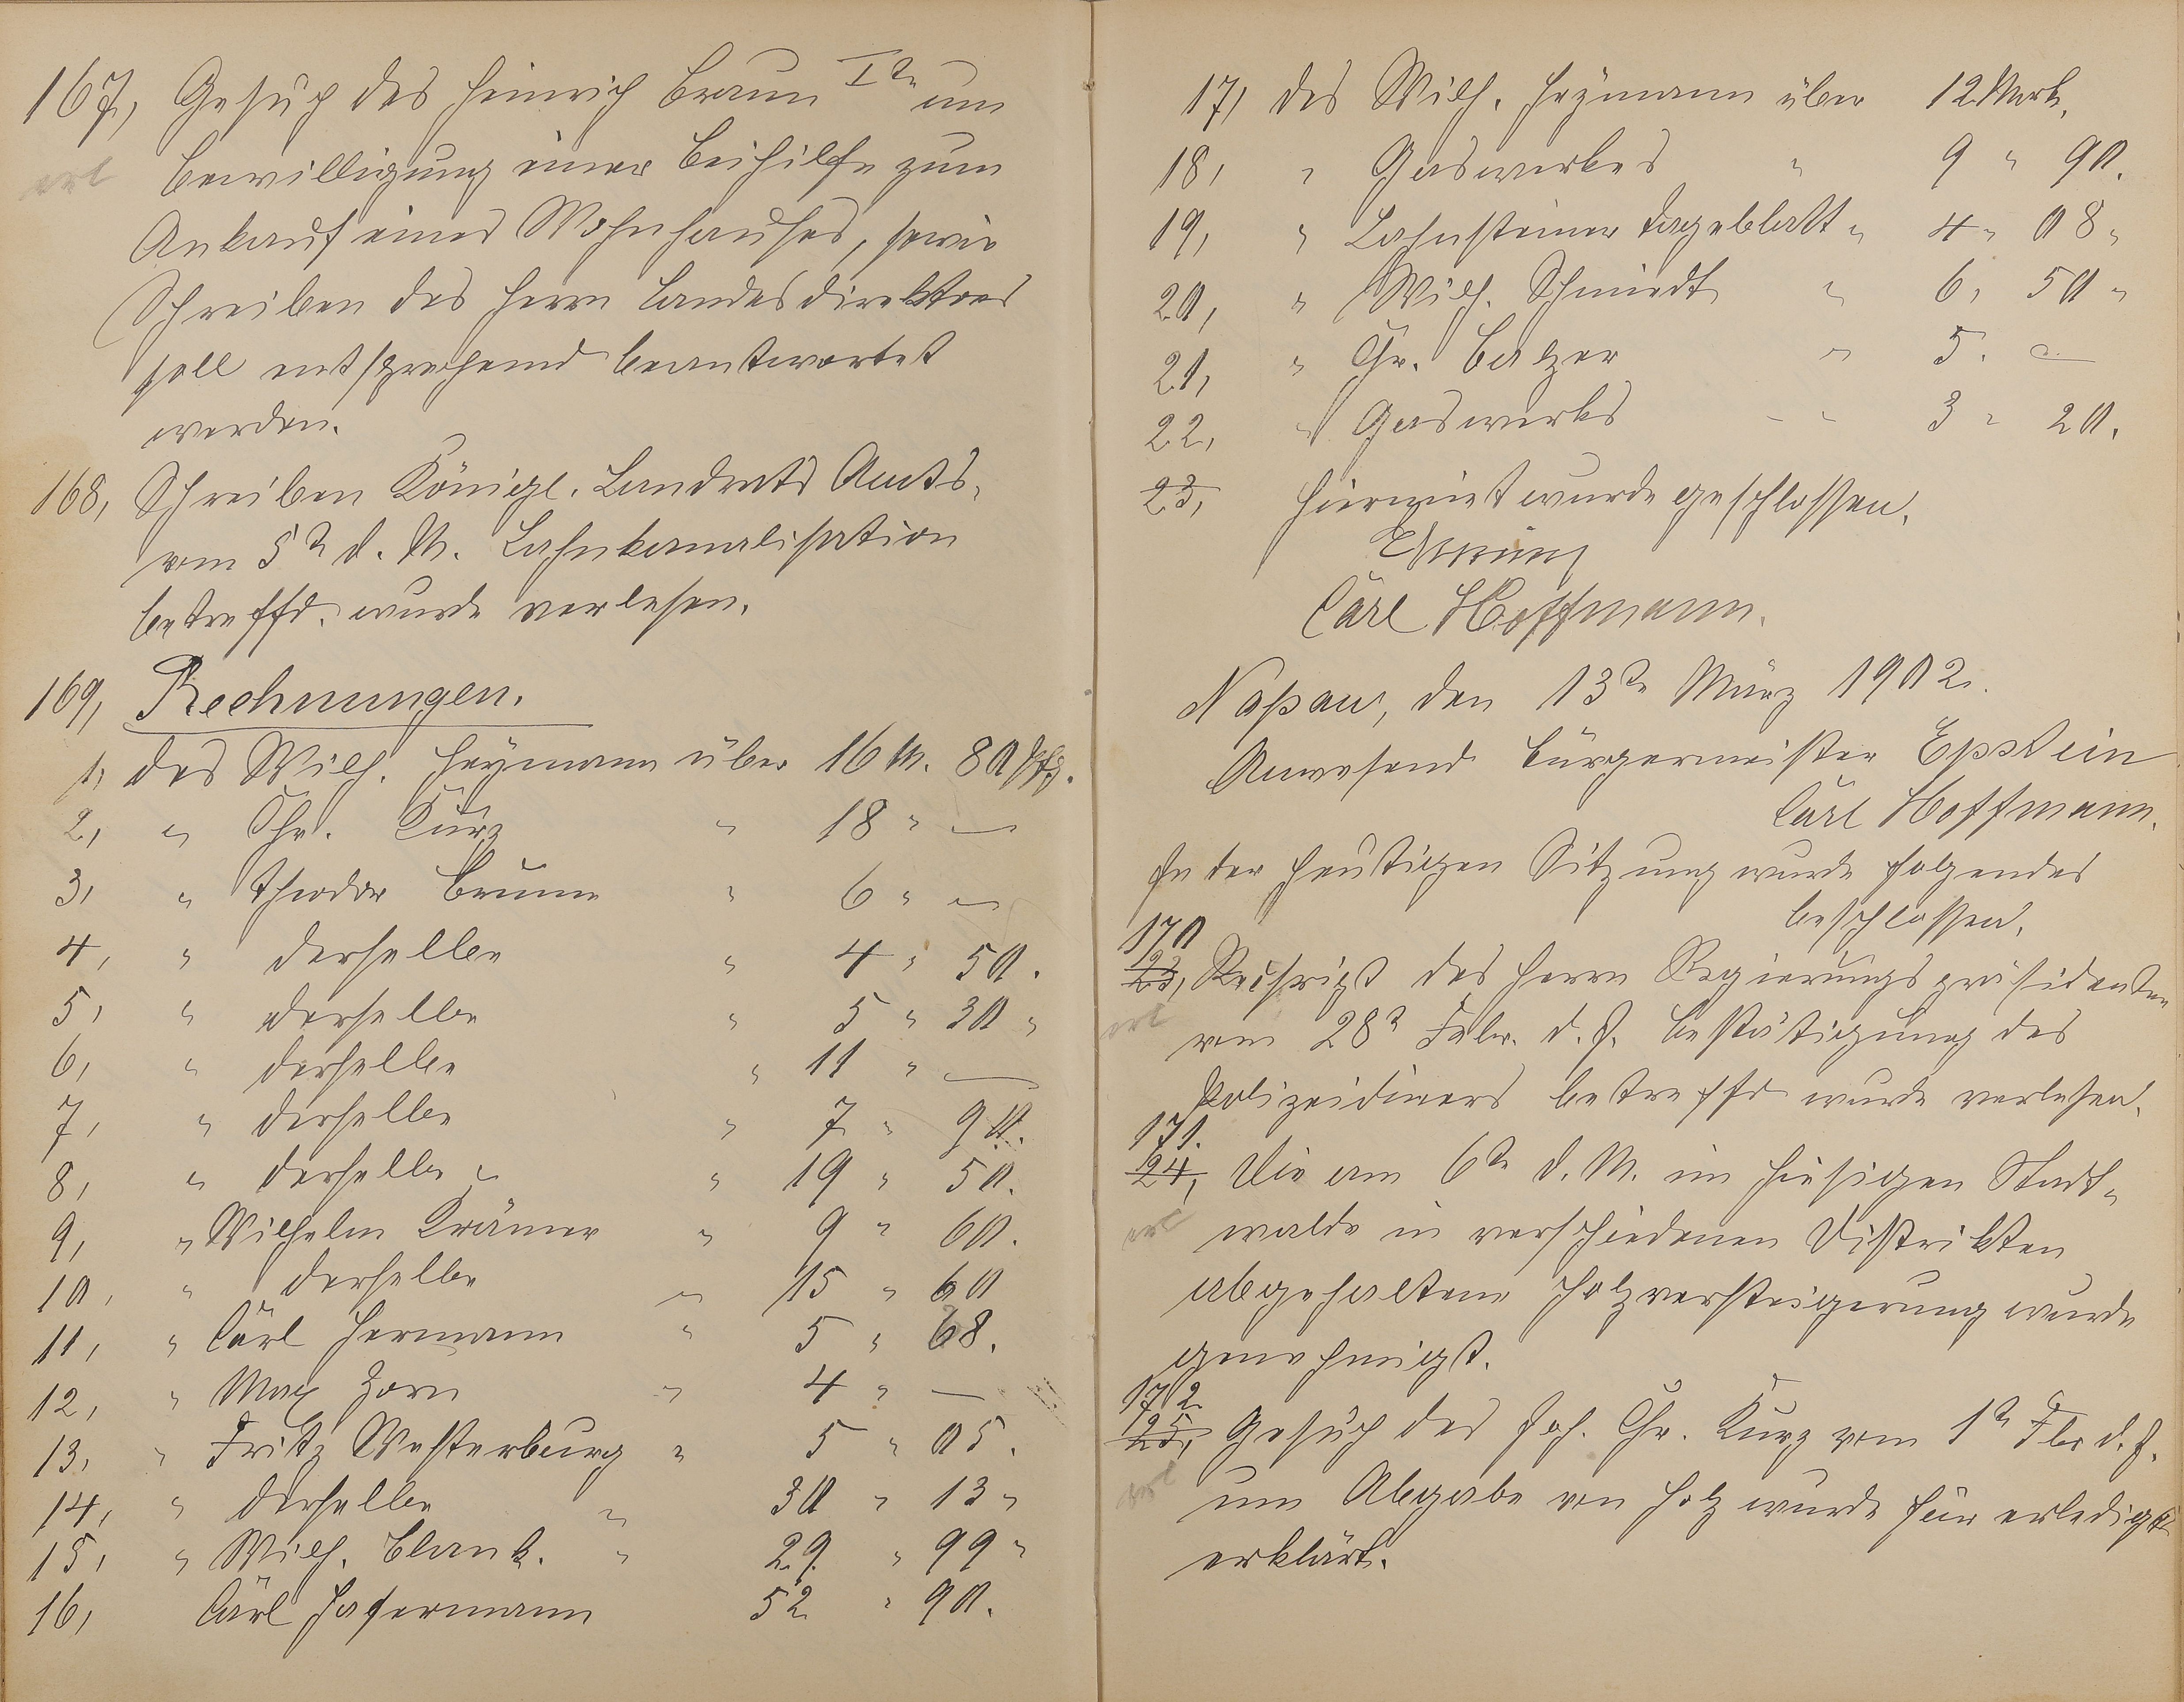 167, Gesuch des Heinrich Braun Itr um
erl
Bewilligung einer Beihilfe zum
Ankauf eines Wohnhauses, sowie
Schreiben des Herrn Landesdirektors
soll entsprechend beantwortet
werden.
168, Schreiben Königl. Landrats Amts,
vom 5t d. M. Lahnkanalisation
betreffd. wurde verlesen.
169, Rechnungen.
1, des Wilh. Heymann über 16 M. 80 Pfg.
2, " Chr. Kurz " 18 " —
3, " Theodor Bruun " 6 " —
4, " derselbe " 4 " 50.
5, " derselbe " 5 " 30 "
6, " derselbe " 11 " —
7, " derselbe " 7 " 90.
8, " derselbe " " 19 " 50.
9, " Wilhelm Krämer " 9 " 60.
10, " derselbe " 15 " 60
11, " Carl Hermann " 5 " 68.
12, " Max Zorn " 4 " —
13, " Fritz Westerburg " 5 " 05.
14, " derselbe " 30 " 13 "
15, " Wilh. Blank. " 29. " 99 "
16, Carl Hafermann 52 " 90.
17, des Wilh. Heymann über 12 Mark.
18, " Gaswerkes " 9 " 90.
19, " Lahnsteiner Tageblatt " 4 " 08 "
20, " Wilh. Schmidt " 6, 50 "
21, " Chr. Balzer " 5. —
22, " Gaswerks " " 3 " 20.
23, Hiermit wurde geschlossen.
Carl Hoffmann.
Naßau, den 13te März 1902.
Anwesend Bürgermeister Epstein
Carl Hoffmann.
In der heutigen Sitzung wurde folgendes
beschlossen.
170
123, Reskript des Herrn Regierungspräsidenten
erl
vom 28t Febr. d. J. Bestätigung des
Polizeidieners betreffd wurde verlesen.
171.
124, Die am 6te d. M. im hiesigen Stadt-
erl
walde in verschiedenen Distrikten
abgehaltene Holzversteigerung wurde
genehmigt.
172
125, Gesuch des Joh. Chr. Kurz vom 1t Fbr d. J.
erl
um Abgabe von Holz wurde für erledigt
erklärt.